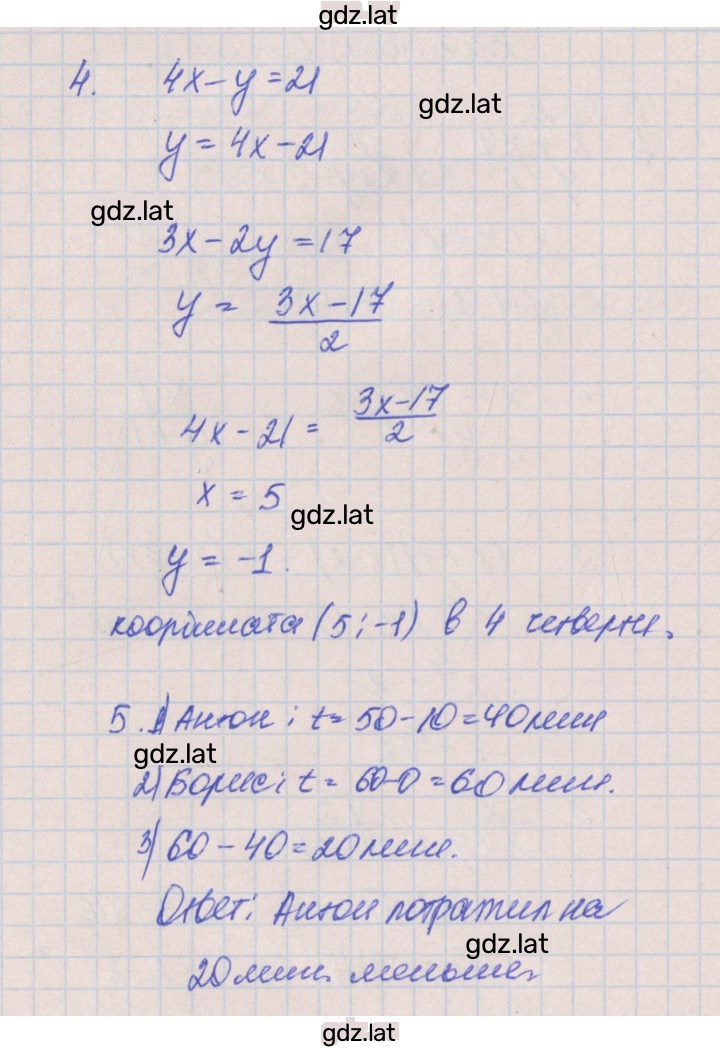 gdz.lat
4. 4x-y=21
gdz.lat
y=4x-21
gdz.lat
3x-2y=17
y = (3x-17)/2
4x-21= (3x-17)/2
x=5
gdz.lat
y=-1.
координата (5;-1) в 4 четверти.
5. 1) Антон: t=50-10=40мин
gdz.lat
2) Борис: t= 60-0=60мин.
3) 60-40=20мин.
Ответ: Антон потратил на
gdz.lat
20мин. меньше.
gdz.lat